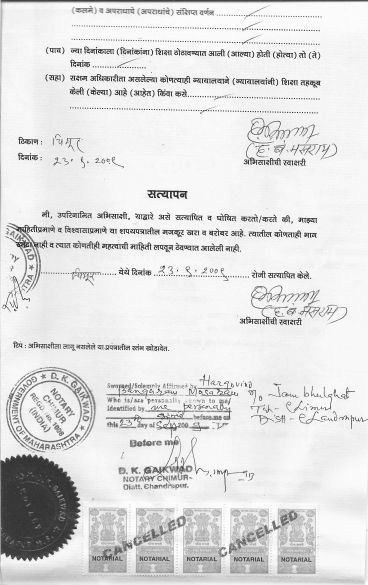 (कलमे) व अपराधाचे (अपराधांचे) संक्षिप्त वर्णन
(पाच) ज्या दिनांकाला (दिनांकांना) शिक्षा ठोठावण्यात आली (आल्या) होती (होत्या) तो (ते)
दिनांक
(सहा) सक्षम अधिकारीता असलेल्या कोणत्याही न्यायालयाने (न्यायालयांनी) शिक्षा तहकूब
केली (केल्या) आहे (आहेत) किंवा कसे
ठिकाण : चिमूर
दिनांक : 23.9.2009
(ह. ब. मसराम)
अभिसाक्षीची स्वाक्षरी
सत्यापन
मी, उपरिनामित अभिसाक्षी, याद्वारे असे सत्यापित व घोषित करतो/करते की, माझ्या
माहितीप्रमाणे व विश्वासाप्रमाणे या शपथपत्रातील मजकूर खरा व बरोबर आहे. त्यातील कोणताही भाग
खोटा नाही व त्यात कोणतीही महत्वाची माहिती लपवून ठेवण्यात आलेली नाही.
चिमूर येथे दिनांक 23.9.2009 रोजी सत्यापित केले.
(ह. ब. मसराम)
अभिसाक्षीची स्वाक्षरी
टिप : अभिसाक्षीला लागू नसलेले या प्रपत्रातील रकाने खोडावेत.
D. K. GAIKWAD
NOTARY
CHIMUR
(INDIA)
GOVERNMENT OF MAHARASHTRA
Sworned/Solemnly Affirmed by Hargovind
Masaram r/o Jambhulghat
Who is/are personally known to me/ Tah- Chimur
Identified by me personally Distt- Chandrapur
this 23 day of Sep 2009
Before me
D. K. GAIKWAD
NOTARY CHIMUR
Distt. Chandrapur.
CANCELLED CANCELLED
NOTARIAL NOTARIAL NOTARIAL NOTARIAL NOTARIAL